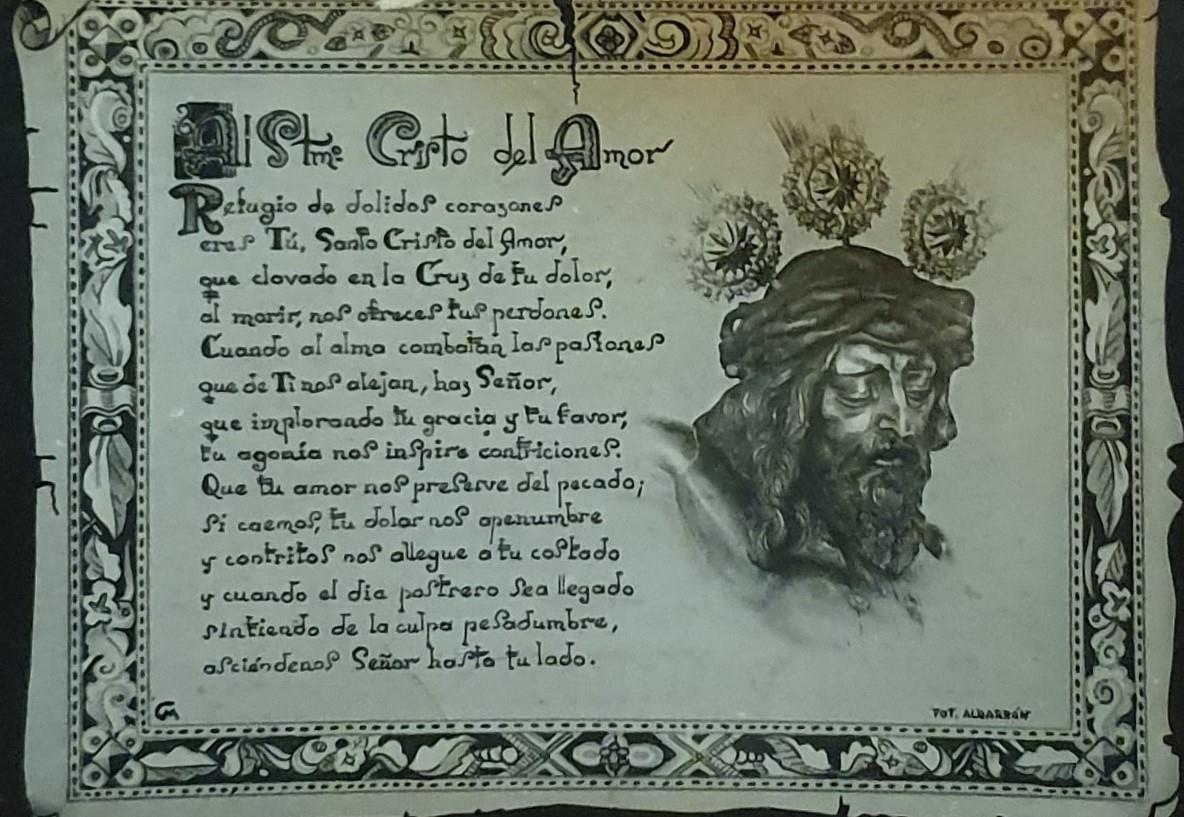 Al Stmo Cristo del Amor
Refugio de dolidos corazones
eres Tú, Santo Cristo del Amor,
que clavado en la Cruz de tu dolor,
al morir, nos ofreces tus perdones.
Cuando al alma combatan las pasiones
que de Ti nos alejan, haz Señor,
que implorando tu gracia y tu favor,
tu agonía nos inspire contriciones.
Que tu amor nos preserve del pecado;
si caemos, tu dolor nos apenumbre
y contritos nos allegue a tu costado
y cuando el dia postrero sea llegado
sintiendo de la culpa pesadumbre,
asciéndenos Señor hasta tu lado.
FOT. ALBARRÁN